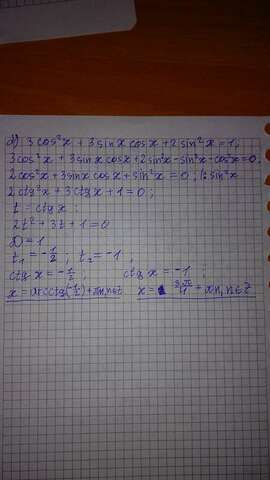 d) 3cos²x + 3sinx cosx + 2sin²x = 1;
3cos²x + 3sinx cosx + 2sin²x - sin²x - cos²x = 0.
2cos²x + 3sinx cosx + sin²x = 0; |: sin²x
2ctg²x + 3ctgx + 1 = 0;
t = ctgx;
2t² + 3t + 1 = 0
D = 1
t₁ = -1/2; t₂ = -1;
ctgx = -1/2; ctgx = -1;
x = arcctg(-1/2) + πn, n∈Z x = 3π/4 + πn, n∈Z